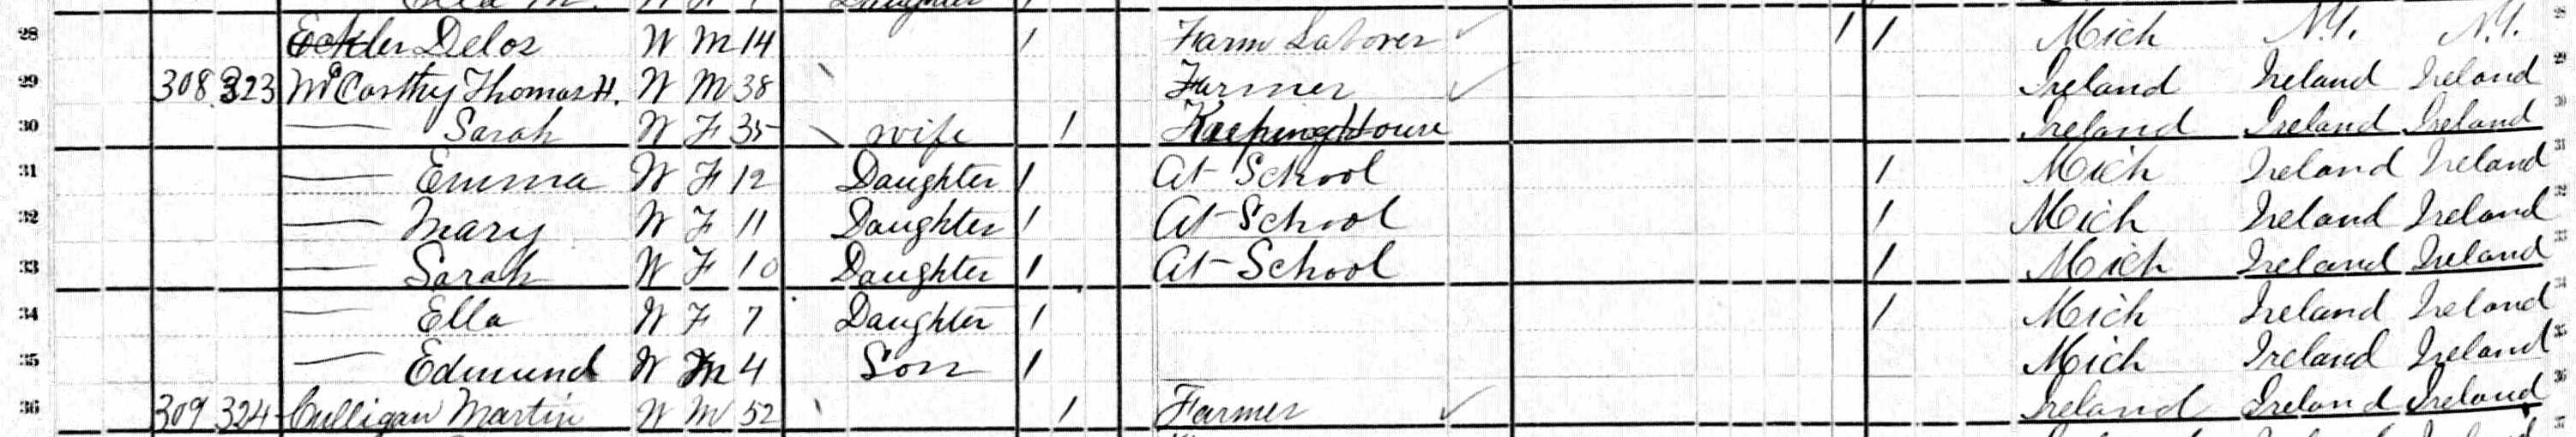 28 Eckler Delos W M 14 1 Farm Laborer ✓ 1 1 Mich N.Y. N.Y. 28
29 308 323 McCarthy Thomas H. W M 38 Farmer ✓ Ireland Ireland Ireland 29
30 — Sarah W F 35 wife 1 Keeping House Ireland Ireland Ireland 30
31 — Emma W F 12 Daughter 1 At School 1 Mich Ireland Ireland 31
32 — Mary W F 11 Daughter 1 At School 1 Mich Ireland Ireland 32
33 — Sarah W F 10 Daughter 1 At School 1 Mich Ireland Ireland 33
34 — Ella W F 7 Daughter 1 1 Mich Ireland Ireland 34
35 — Edmund W M 4 Son 1 Mich Ireland Ireland 35
36 309 324 Culligan Martin W M 52 1 Farmer ✓ Ireland Ireland Ireland 36